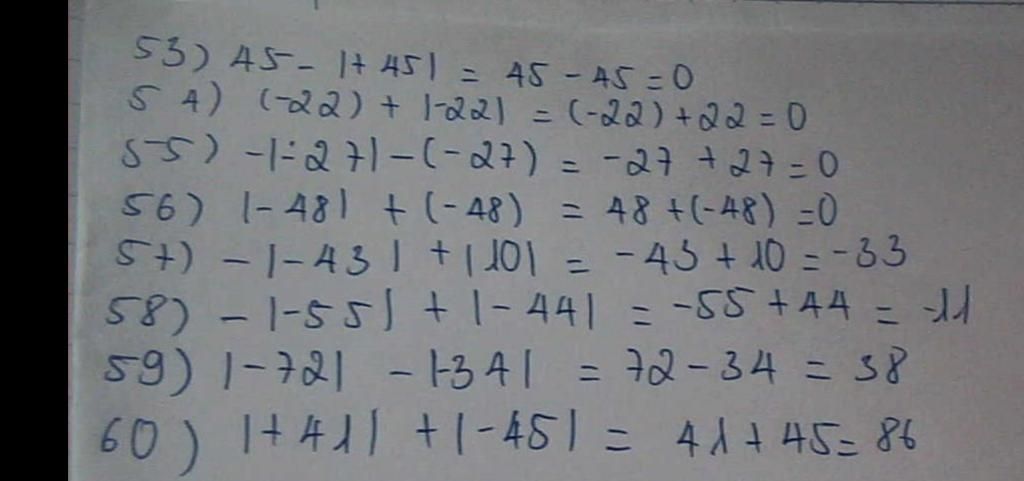 53) 45 - |+ 45| = 45 - 45 = 0
54) (-22) + |-22| = (-22) + 22 = 0
55) -|-27| - (-27) = -27 + 27 = 0
56) |-48| + (-48) = 48 + (-48) = 0
57) -|-43| + |10| = -43 + 10 = -33
58) -|-55| + |-44| = -55 + 44 = -11
59) |-72| - |-34| = 72 - 34 = 38
60) |+41| + |-45| = 41 + 45 = 86